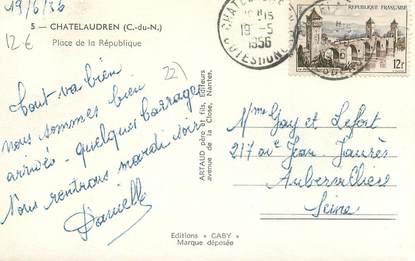 19/6/56
12€
5 — CHATELAUDREN (C.-du-N.)
Place de la République
22)
Tout va bien
nous sommes bien
arrivés - quelques barrages
Nous rentrons mardi soir
Danielle
ARTAUD père et fils, Editeurs
avenue de la Close, Nantes.
Editions "GABY"
Marque déposée
CHATELAUDREN
19-5
1956
COTES DU NORD
REPUBLIQUE FRANÇAISE
12f
Mme Gay et Lefort
217 av Jean Jaurès
Aubervilliers
Seine